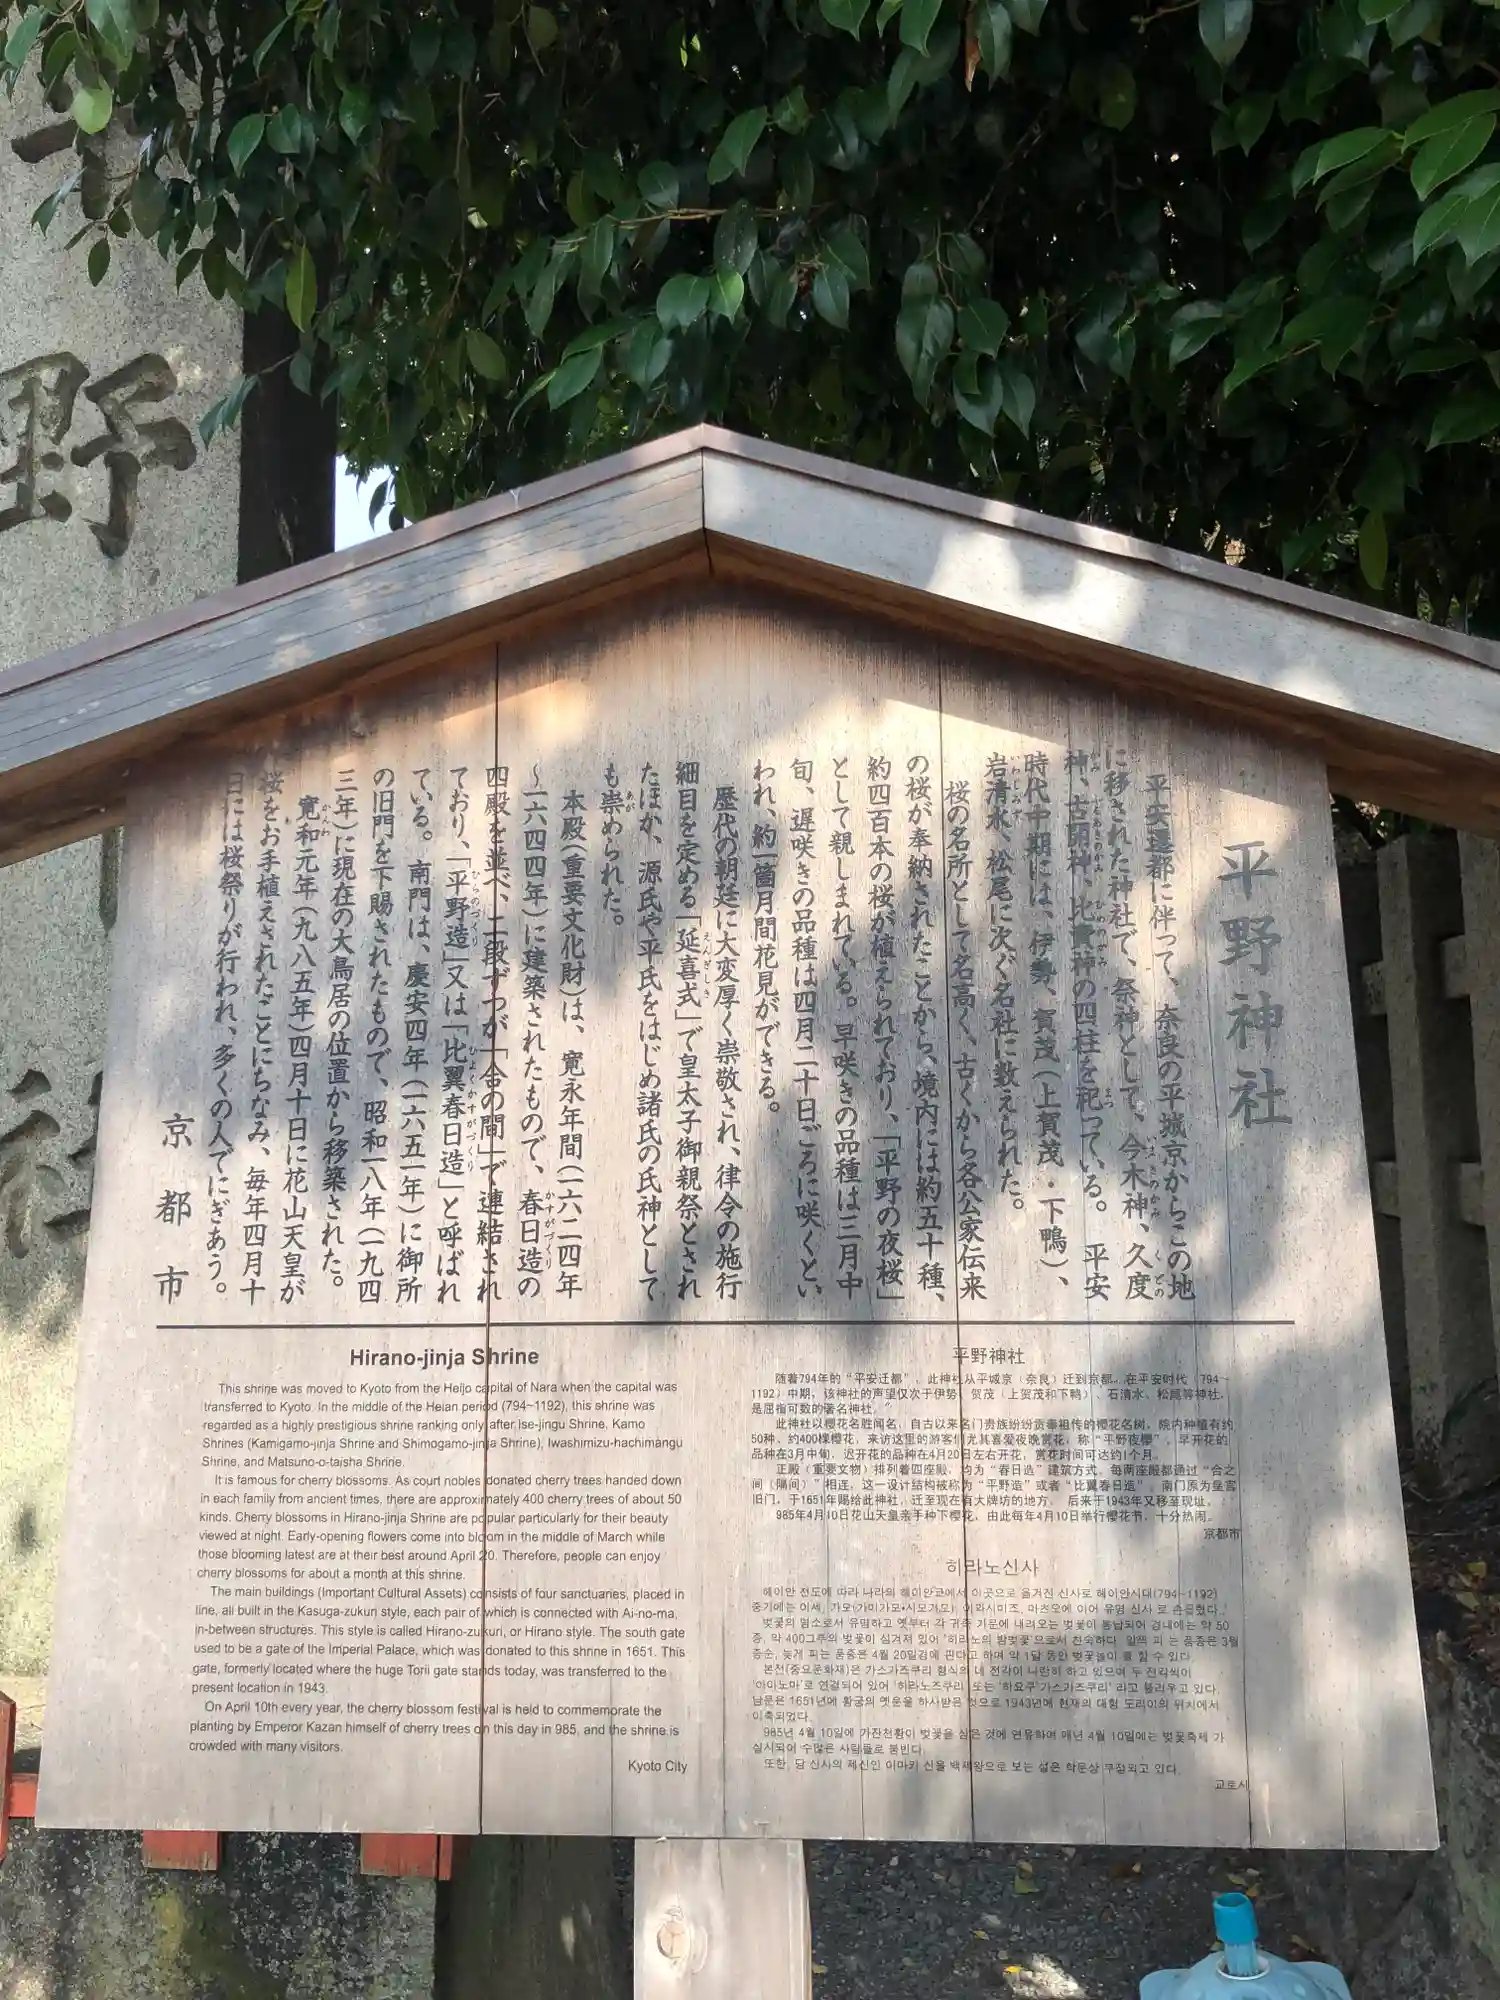 野
平野神社
平安遷都に伴って、奈良の平城京からこの地
に移された神社で、祭神として、今木神、久度
神、古開神、比賣神の四柱を祀っている。 平安
時代中期には、伊勢、賀茂(上賀茂・下鴨)、
岩清水、松尾に次ぐ名社に数えられた。
桜の名所として名高く、古くから各公家伝来
の桜が奉納されたことから、境内には約五十種、
約四百本の桜が植えられており、「平野の夜桜」
として親しまれている。早咲きの品種は三月中
旬、遅咲きの品種は四月二十日ごろに咲くとい
われ、約一箇月間花見ができる。
歴代の朝廷に大変厚く崇敬され、律令の施行
細目を定める「延喜式」で皇太子御親祭とされ
たほか、源氏や平氏をはじめ諸氏の氏神として
も崇められた。
本殿(重要文化財)は、寛永年間(一六二四年
~一六四四年)に建築されたもので、春日造の
四殿を並べ、二殿ずつが「合の間」で連結され
ており、「平野造」又は「比翼春日造」と呼ばれ
ている。南門は、慶安四年(一六五一年)に御所
の旧門を下賜されたもので、昭和一八年(一九四
三年)に現在の大鳥居の位置から移築された。
寛和元年(九八五年)四月十日に花山天皇が
桜をお手植えされたことにちなみ、毎年四月十
日には桜祭りが行われ、多くの人でにぎあう。
京都市
Hirano-jinja Shrine
This shrine was moved to Kyoto from the Heijo capital of Nara when the capital was
transferred to Kyoto. In the middle of the Heian period (794~1192), this shrine was
regarded as a highly prestigious shrine ranking only after Ise-jingu Shrine, Kamo
Shrines (Kamigamo-jinja Shrine and Shimogamo-jinja Shrine), Iwashimizu-hachimangu
Shrine, and Matsuno-o-taisha Shrine.
It is famous for cherry blossoms. As court nobles donated cherry trees handed down
in each family from ancient times, there are approximately 400 cherry trees of about 50
kinds. Cherry blossoms in Hirano-jinja Shrine are popular particularly for their beauty
viewed at night. Early-opening flowers come into bloom in the middle of March while
those blooming latest are at their best around April 20. Therefore, people can enjoy
cherry blossoms for about a month at this shrine.
The main buildings (Important Cultural Assets) consists of four sanctuaries, placed in
line, all built in the Kasuga-zukuri style, each pair of which is connected with Ai-no-ma,
in-between structures. This style is called Hirano-zukuri, or Hirano style. The south gate
used to be a gate of the Imperial Palace, which was donated to this shrine in 1651. This
gate, formerly located where the huge Torii gate stands today, was transferred to the
present location in 1943.
On April 10th every year, the cherry blossom festival is held to commemorate the
planting by Emperor Kazan himself of cherry trees on this day in 985, and the shrine is
crowded with many visitors.
Kyoto City
平野神社
随着794年的“平安迁都”，此神社从平城京（奈良）迁到京都。在平安时代（794~
1192）中期，该神社的声望仅次于伊势、贺茂（上贺茂和下鸭）、石清水、松尾等神社，
是屈指可数的著名神社。
此神社以樱花名胜闻名，自古以来名门贵族纷纷贡奉祖传的樱花名树，院内种植有约
50种、约400棵樱花，来访这里的游客们尤其喜爱夜晚赏花，称“平野夜樱”。早开花的
品种在3月中旬，迟开花的品种在4月20日左右开花，赏花时间可达约1个月。
正殿（重要文物）排列着四座殿，均为“春日造”建筑方式，每两座殿都通过“合之
间（隔间）”相连，这一设计结构被称为“平野造”或者“比翼春日造”。南门原为皇宫
旧门，于1651年赐给此神社，迁至现在有大牌坊的地方。 后来于1943年又移至现址。
985年4月10日花山天皇亲手种下樱花，由此每年4月10日举行樱花节，十分热闹。
京都市
히라노신사
헤이안 천도에 따라 나라의 헤이안쿄에서 이곳으로 옮겨진 신사로 헤이안시대(794~1192)
중기에는 이세, 가모(가미가모•시모가모), 이와시미즈, 마츠오에 이어 유명 신사 로 손꼽혔다.
벚꽃의 명소로서 유명하고 옛부터 각 귀족 가문에 내려오는 벚꽃이 봉납되어 경내에는 약 50
종, 약 400그루의 벚꽃이 심겨져 있어 '히라노의 밤벚꽃'으로서 친숙하다. 일찍 피 는 품종은 3월
중순, 늦게 피는 품종은 4월 20일경에 핀다고 하며 약 1달 동안 벚꽃놀이 를 할 수 있다.
본전(중요문화재)은 가스가즈쿠리 형식의 네 전각이 나란히 하고 있으며 두 전각씩이
'아이노마'로 연결되어 있어 '히라노즈쿠리' 또는 '히요쿠가스가즈쿠리' 라고 불리우고 있다.
남문은 1651년에 황궁의 옛문을 하사받은 것으로 1943년에 현재의 대형 도리이의 위치에서
이축되었다.
985년 4월 10일에 가잔천황이 벚꽃을 심은 것에 연유하여 매년 4월 10일에는 벚꽃축제 가
실시되어 수많은 사람들로 붐빈다.
또한, 당 신사의 제신인 이마키 신을 백제왕으로 보는 설은 학문상 부정되고 있다.
교토시